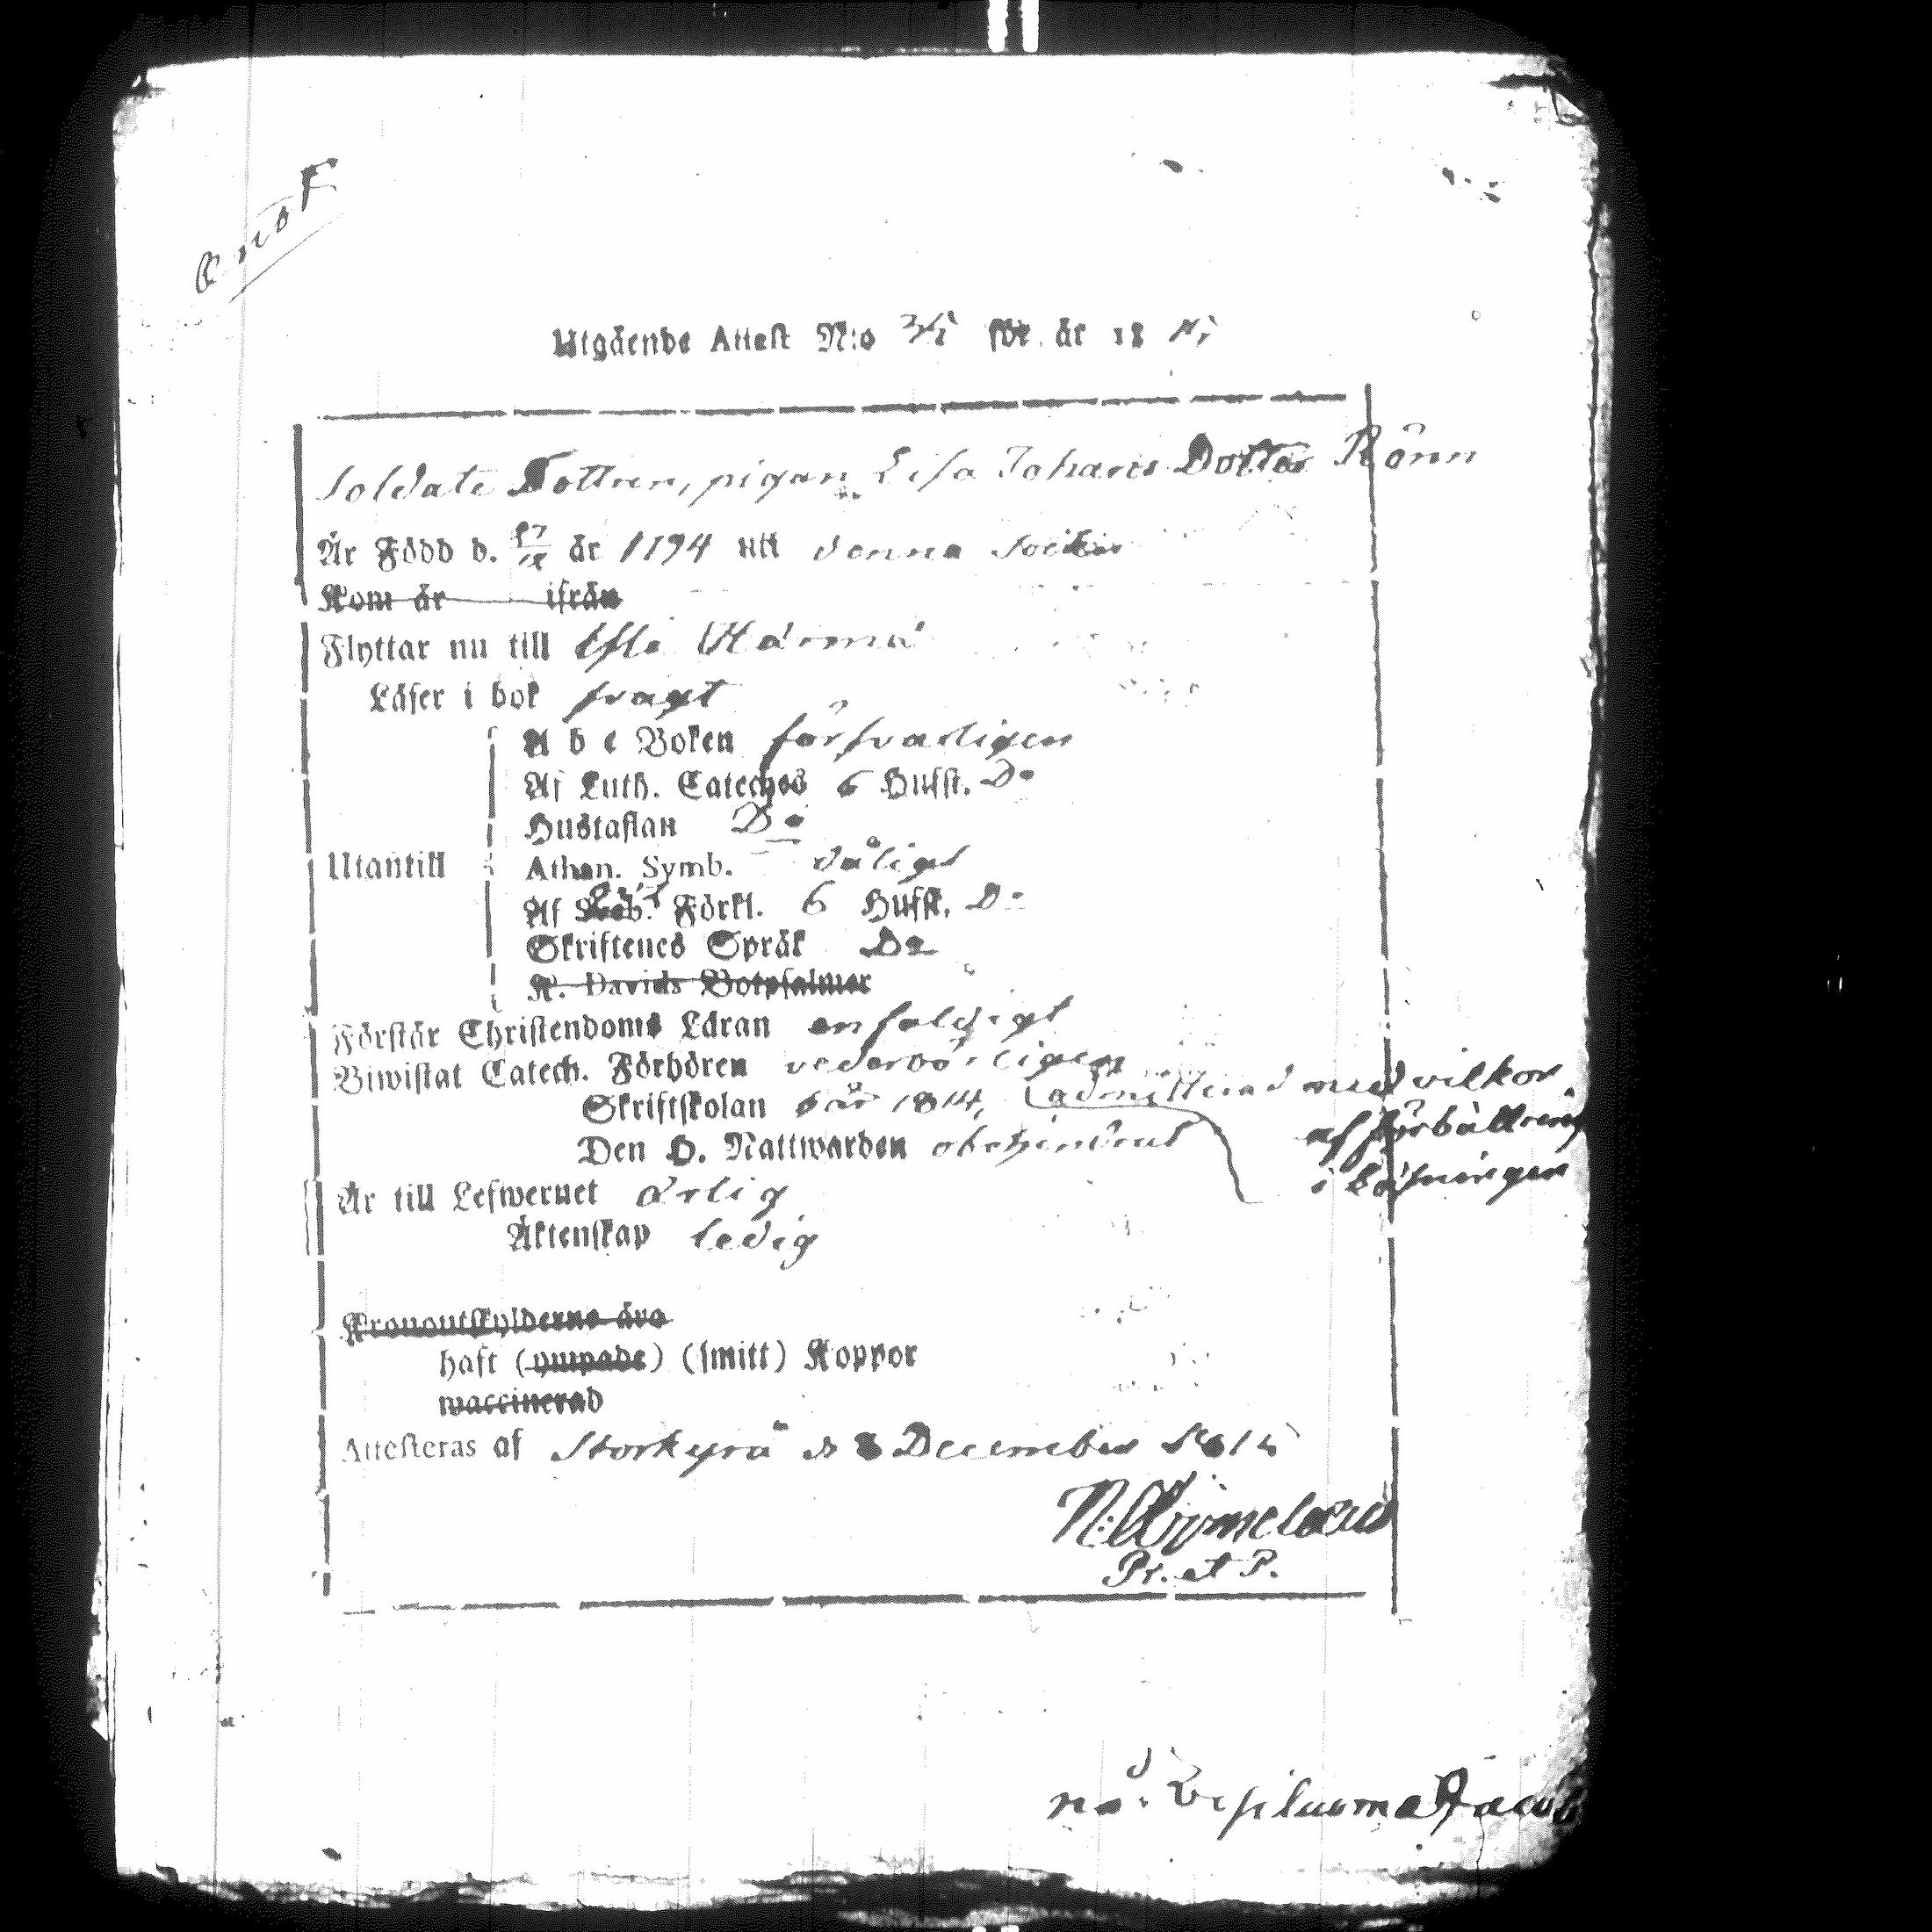 Utgående Attest N:o för år 18
Soldate Dottren, pigan Lisa Johans Dotter Rönn
Är Född d. år 1794 till denna Socken
Kom år ifrån
Flyttar nu till Härmä
Läser i bok svagt
A b c Boken försvarligen
Af Luth. Cateches 6 Hufst. Do
Hustaflan Do
Utantill
Athan. Symb. dåligt
Af Förkl. 6 Hufst. Do
Skriftenes Språk Do
K. Davids Botpsalmer
Förstår Christendoms Läran enfaldigt
Biwistat Catech. Förhören vederbörligen
Skriftskolan år 1814, admitterad med vilkor
af förbättring
i läsningen
Den H. Nattwarden obehindrat
Är till Lefwernet ärlig
Äktenskap ledig
Kronoutskylderna äro
haft (ympade) (smitt) Koppor
waccinerad
Attesteras af Storkyrå d 8 December 1815
Pr. et P.